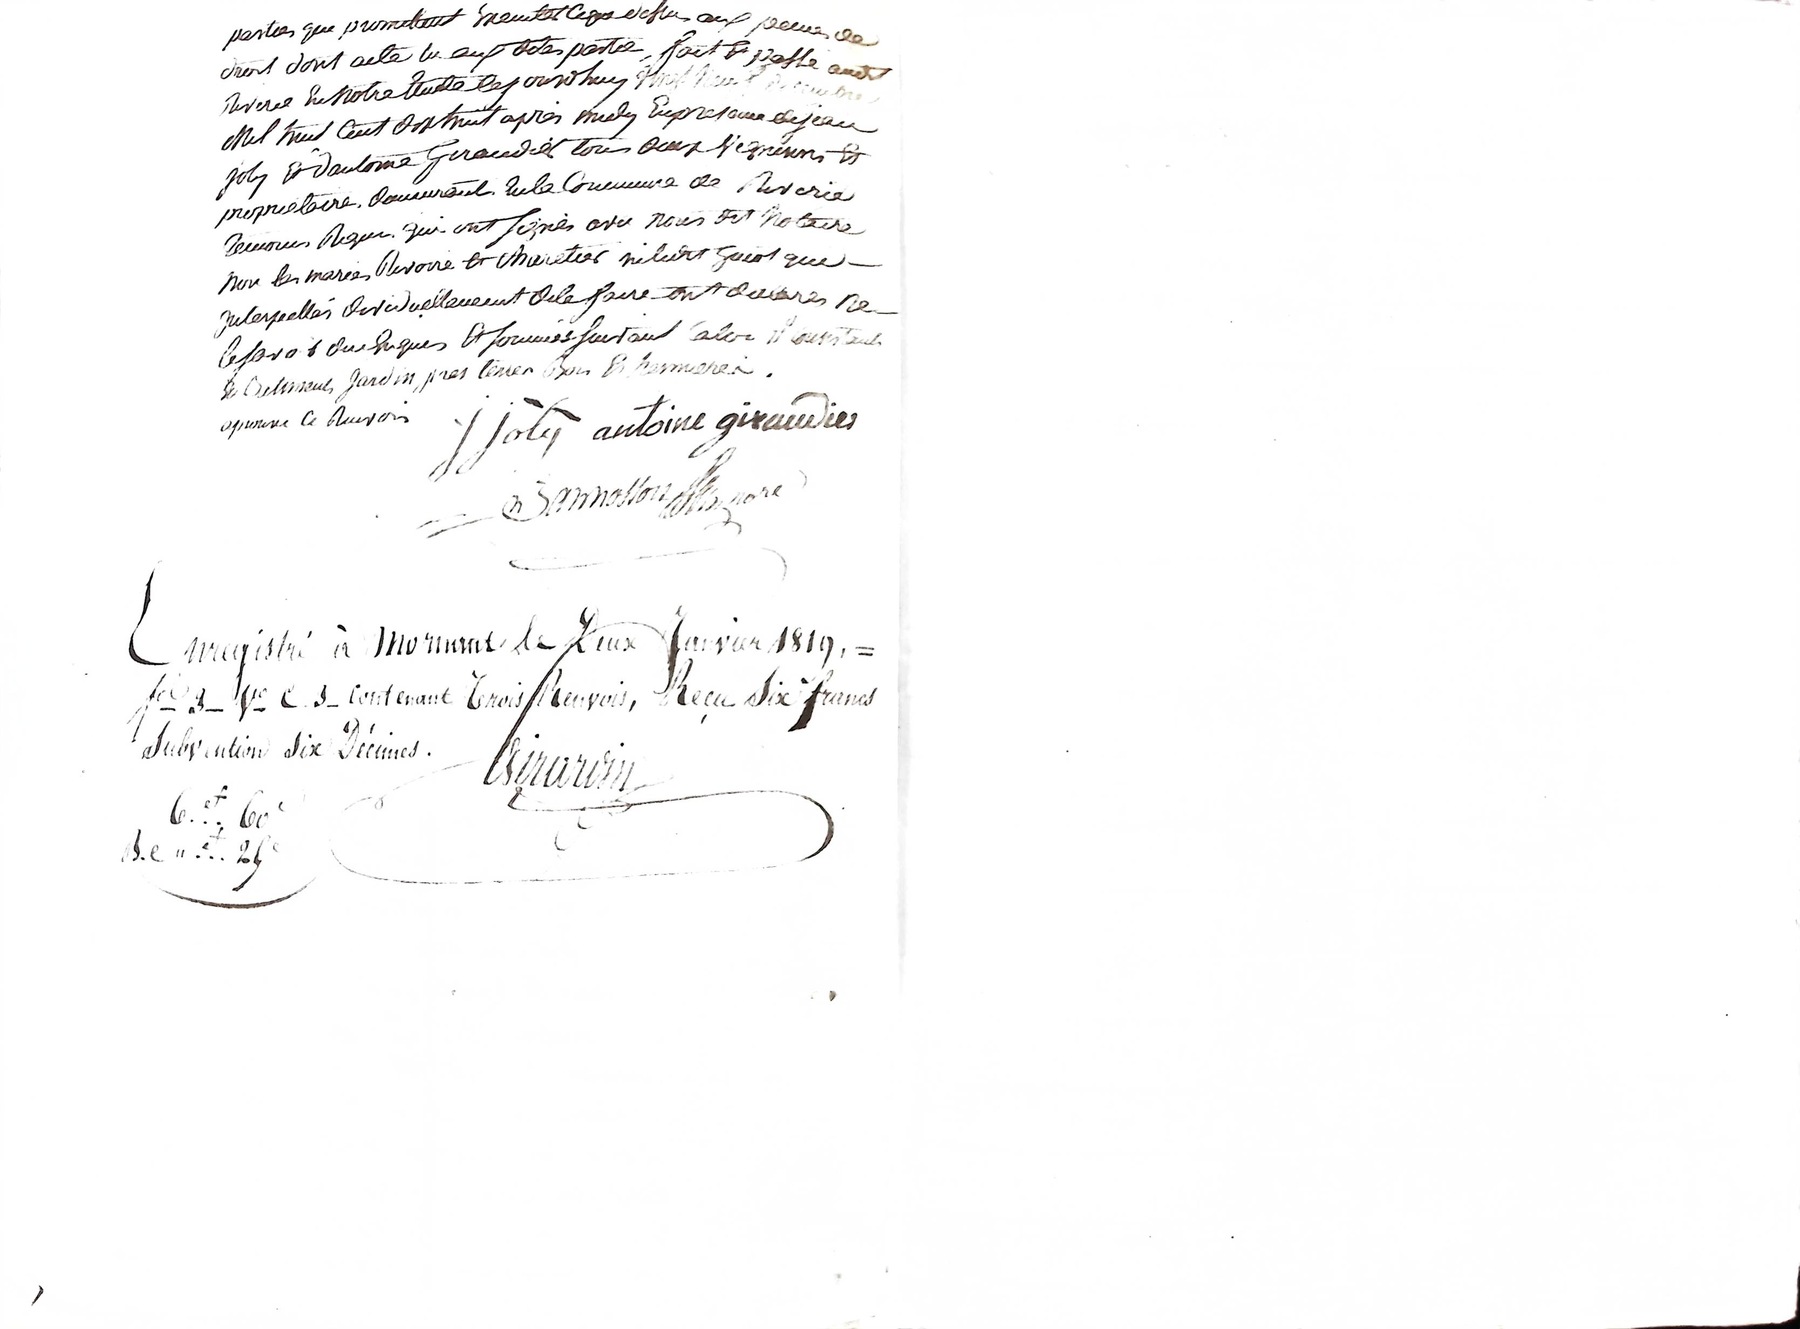 parties que promettent Executer Ceque dessus aux peines de
droit dont acte lu aux dites partie, fait Et passé audit
Riverie En Notre Etude Cejourdhuy vingt Neuf Decembre
Mil huit Cent dix huit apres midy En presence de jean
joly Et D'antoine Giraudier tous deux Vignerons Et
proprietaire. demeurant En la Commune de Riverie
temoins Requis qui ont signés avec nous dit Notaire
Non les mariés Rivoire Et que
jnterpellés dividuellement de le faire ont declarés Ne
le savoir Et sommés suivant la loi
jardin, pres terres Bois Et
aprouvé Ce Renvois
j joly antoine giraudier
Enregistré à Mornant le Deux Janvier 1819. =
fo. 3 Vo. C. 3 contenant Trois Renvois, Reçu Six francs
Subvention Six Décimes.
Girardin
6.f. 60c
25c